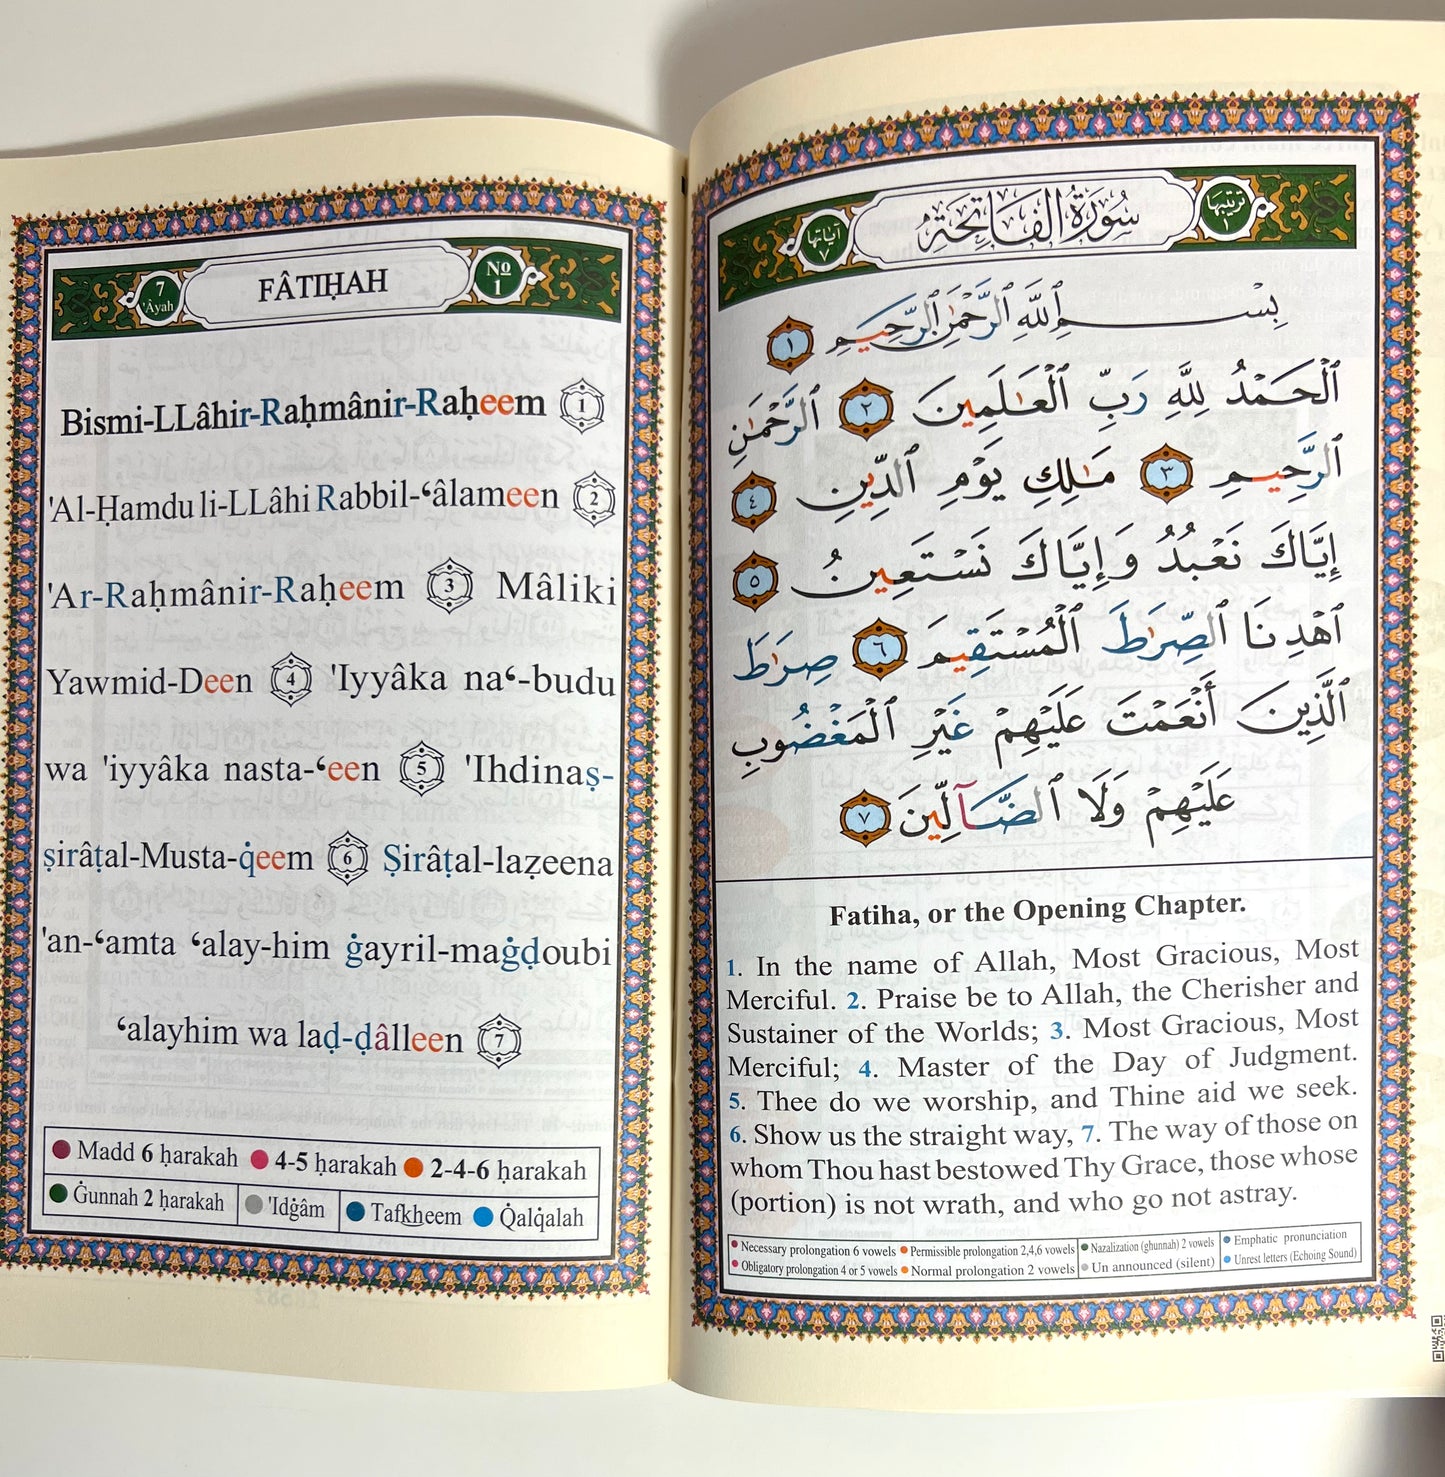 7
'Âyah
FÂTIḤAH
No
1
Bismi-LLâhir-Raḥmânir-Raḥeem 1
'Al-Ḥamdu li-LLâhi Rabbil-‘âlameen 2
'Ar-Raḥmânir-Raḥeem 3 Mâliki
Yawmid-Deen 4 'Iyyâka na‘-budu
wa 'iyyâka nasta-‘een 5 'Ihdinaṣ-
ṣirâṭal-Musta-q̇eem 6 Ṣirâṭal-laẓeena
'an-‘amta ‘alay-him ġayril-maġḍoubi
‘alayhim wa laḍ-ḍâlleen 7
Madd 6 ḥarakah 4-5 ḥarakah 2-4-6 ḥarakah
Ġunnah 2 ḥarakah 'Idġâm Tafkheem Q̇alq̇alah
ترتيبها
١
سُورَةُ الفَاتِحَةِ
آياتها
٧
بِسْمِ ٱللَّهِ ٱلرَّحْمَٰنِ ٱلرَّحِيمِ ١
ٱلْحَمْدُ لِلَّهِ رَبِّ ٱلْعَٰلَمِينَ ٢ ٱلرَّحْمَٰنِ
ٱلرَّحِيمِ ٣ مَٰلِكِ يَوْمِ ٱلدِّينِ ٤
إِيَّاكَ نَعْبُدُ وَإِيَّاكَ نَسْتَعِينُ ٥
ٱهْدِنَا ٱلصِّرَٰطَ ٱلْمُسْتَقِيمَ ٦ صِرَٰطَ
ٱلَّذِينَ أَنْعَمْتَ عَلَيْهِمْ غَيْرِ ٱلْمَغْضُوبِ
عَلَيْهِمْ وَلَا ٱلضَّآلِّينَ ٧
Fatiha, or the Opening Chapter.
1. In the name of Allah, Most Gracious, Most
Merciful. 2. Praise be to Allah, the Cherisher and
Sustainer of the Worlds; 3. Most Gracious, Most
Merciful; 4. Master of the Day of Judgment.
5. Thee do we worship, and Thine aid we seek.
6. Show us the straight way, 7. The way of those on
whom Thou hast bestowed Thy Grace, those whose
(portion) is not wrath, and who go not astray.
Necessary prolongation 6 vowels Permissible prolongation 2,4,6 vowels Nazalization (ghunnah) 2 vowels Emphatic pronunciation
Obligatory prolongation 4 or 5 vowels Normal prolongation 2 vowels Un announced (silent) Unrest letters (Echoing Sound)